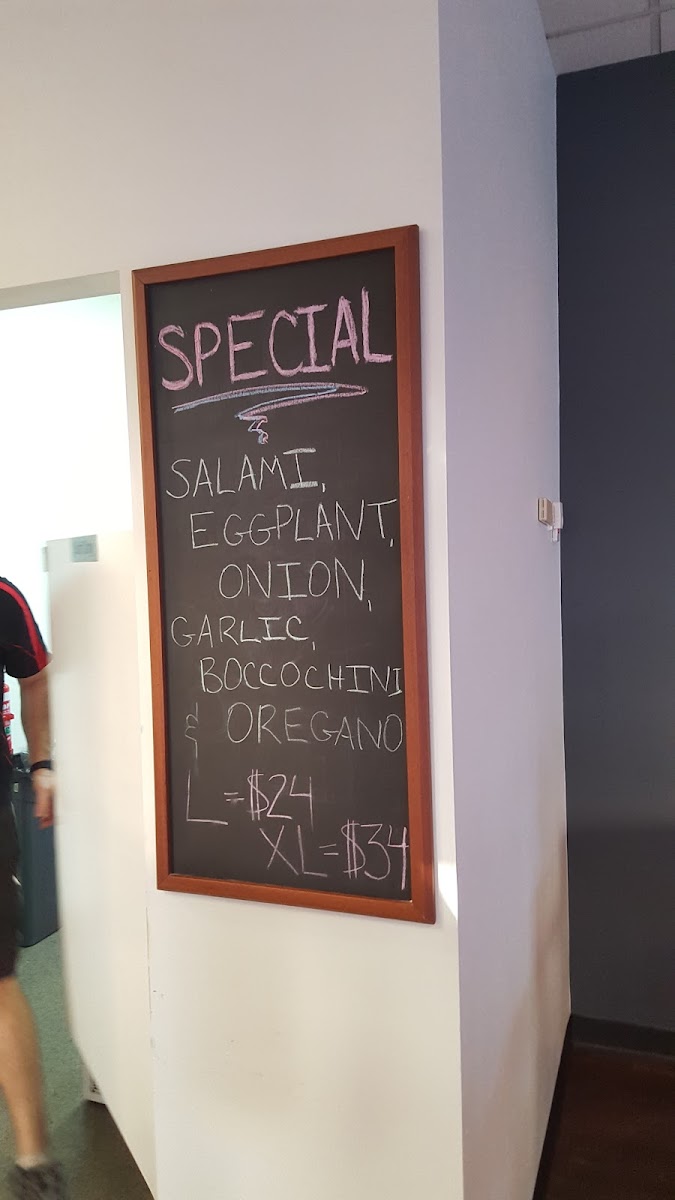 SPECIAL
SALAMI,
EGGPLANT,
ONION,
GARLIC,
BOCCOCHINI
& OREGANO
L = $24
XL = $34